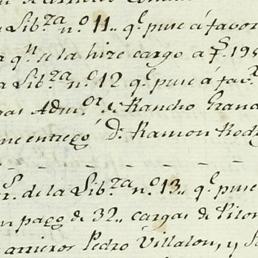 a Libza n.o 11,, qe puse á favor
a qn se la hize cargo a fs 195
a Libza n.o 12 qe puse á favr
Admor Rancho Grand
me entregó Dn Ramon Rodr
r. de la Libza n.o 13,, qe puse
n pago de 32,, cargas de Piton
arrieros Pedro Villalon, y